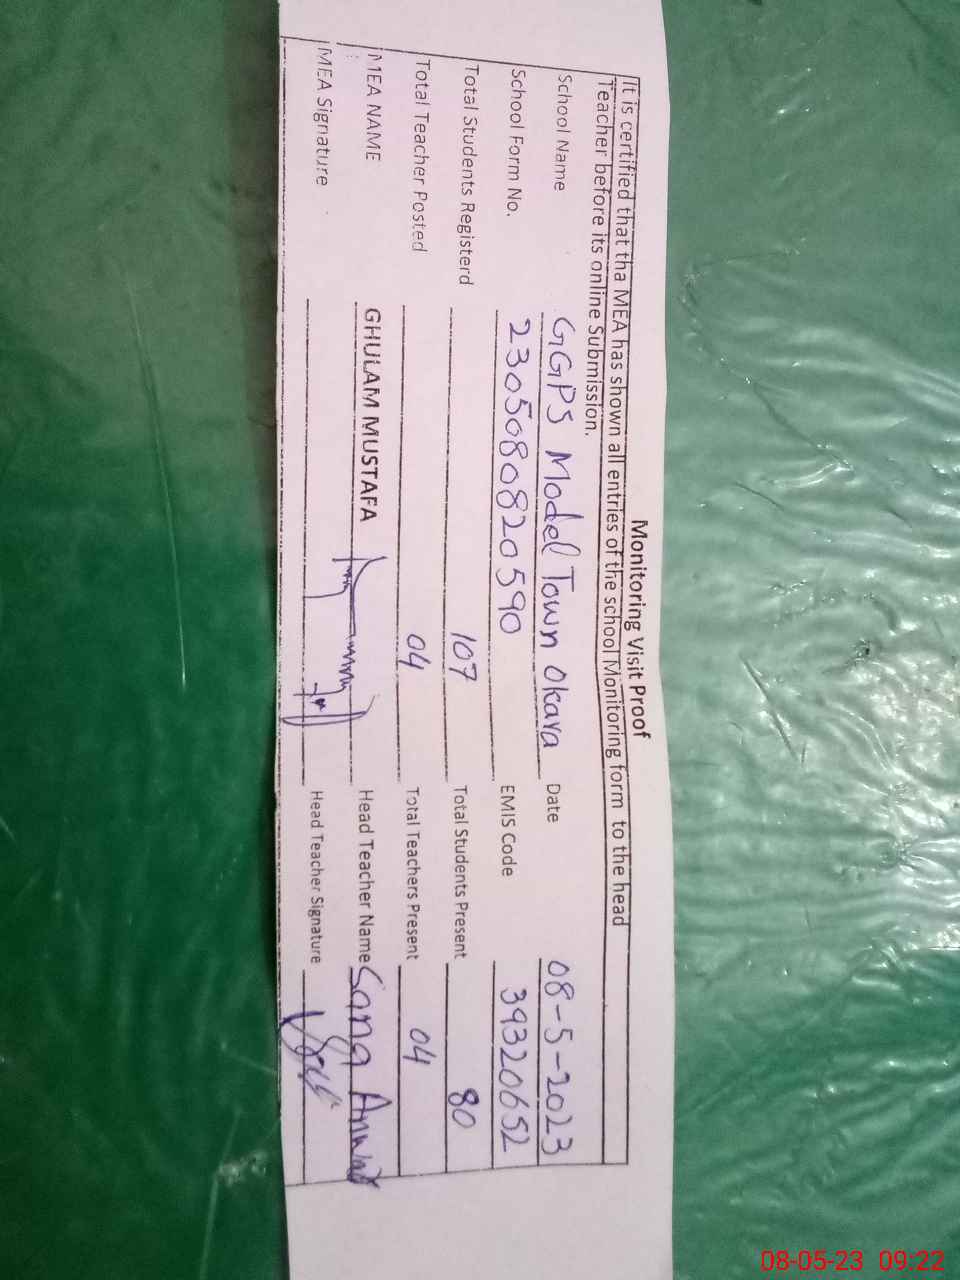 Monitoring Visit Proof
It is certified that tha MEA has shown all entries of the school Monitoring form to the head
Teacher before its online Submission.
School Name GGPS Model Town Okara Date 08-5-2023
School Form No. 2305080820590 EMIS Code 39320652
Total Students Registerd 107 Total Students Present 80
Total Teacher Posted 04 Total Teachers Present 04
MEA NAME GHULAM MUSTAFA Head Teacher Name
MEA Signature Head Teacher Signature
08-05-23 09:22